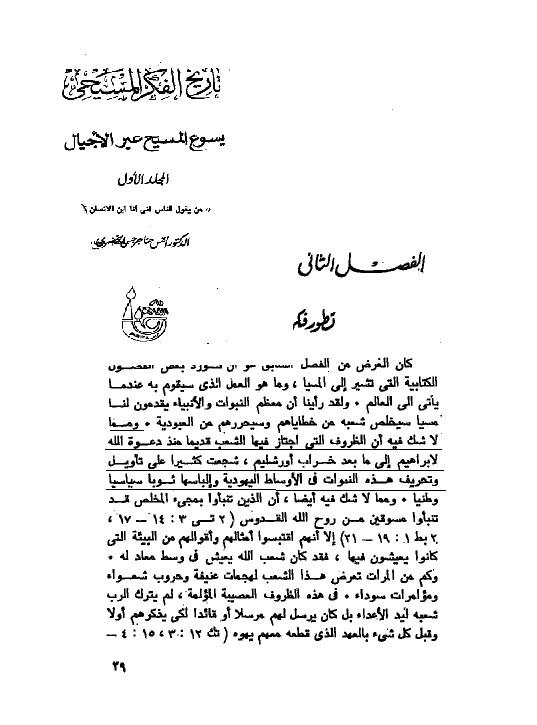 تاريخ الفكر المسيحى
يسوع المسيح عبر الأجيال
المجلد الأول
« من يقول الناس انى أنا ابن الانسان ؟
الدكتور القس حنا جرجس الخضرى
الفصل الثانى
تطور فكر
كان الغرض من الفصل السابق هو أن نورد بعض النصوص
الكتابية التى تشير إلى المسيا ، وما هو العمل الذى سيقوم به عندما
يأتى الى العالم • ولقد رأينا أن معظم النبوات والأنبياء يقدمون لنا
مسيا سيخلص شعبه من خطاياهم وسيحررهم من العبودية • ومما
لا شك فيه أن الظروف التى اجتاز فيها الشعب قديما منذ دعوة الله
لابراهيم إلى ما بعد خراب أورشليم ، شجعت كثيرا على تأويل
وتحريف هذه النبوات فى الأوساط اليهودية وإلباسها ثوبا سياسيا
وطنيا • ومما لا شك فيه أيضا ، أن الذين تنبأوا بمجىء المخلص قد
تنبأوا مسوقين من روح الله القدوس ( ٢ تى ٣ : ١٤ – ١٧ ،
٢ بط ١ : ١٩ – ٢١) إلا أنهم اقتبسوا أمثالهم وأقوالهم من البيئة التى
كانوا يعيشون فيها ، فقد كان شعب الله يعيش فى وسط معاد له •
وكم من المرات تعرض هذا الشعب لهجمات عنيفة وحروب شعواء
ومؤامرات سوداء • فى هذه الظروف العصيبة المؤلمة ، لم يترك الرب
شعبه ليد الأعداء بل كان يرسل لهم مرسلا أو قائدا لكى يذكرهم أولا
وقبل كل شىء بالعهد الذى قطعه معهم يهوه ( تك ١٢ : ٣ ، ١٥ : ٤ –
٣٩